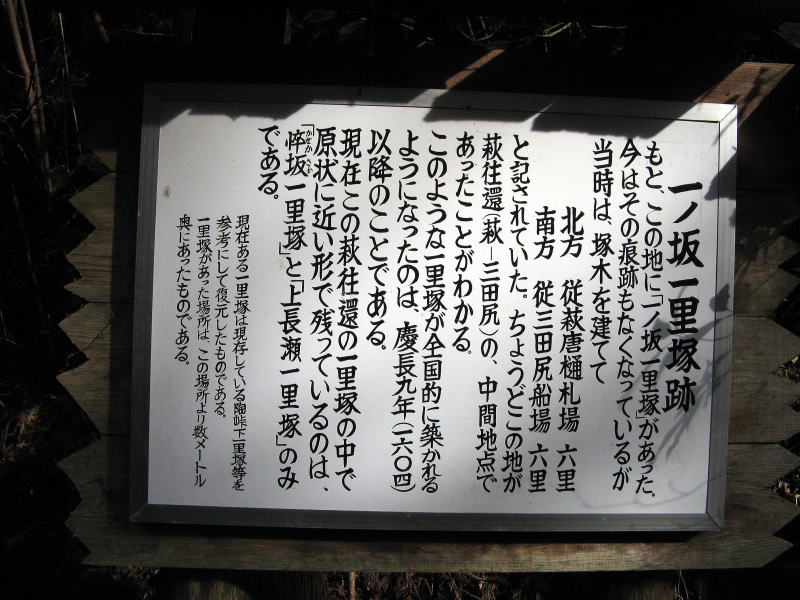 一ノ坂一里塚跡
もと、この地に「一ノ坂一里塚」があった。
今はその痕跡もなくなっているが
当時は、塚木を建てて
北方 従萩唐樋札場 六里
南方 従三田尻船場 六里
と記されていた。ちょうどこの地が
萩往還(萩―三田尻)の、中間地点で
あったことがわかる。
このような一里塚が全国的に築かれる
ようになったのは、慶長九年(一六〇四)
以降のことである。
現在この萩往還の一里塚の中で
原状に近い形で残っているのは、
「悴坂一里塚」と「上長瀬一里塚」のみ
である。
現在ある一里塚は現存している陶峠下一里塚等を
参考にして復元したものである。
一里塚があった場所は、この場所より数メートル
奥にあったものである。